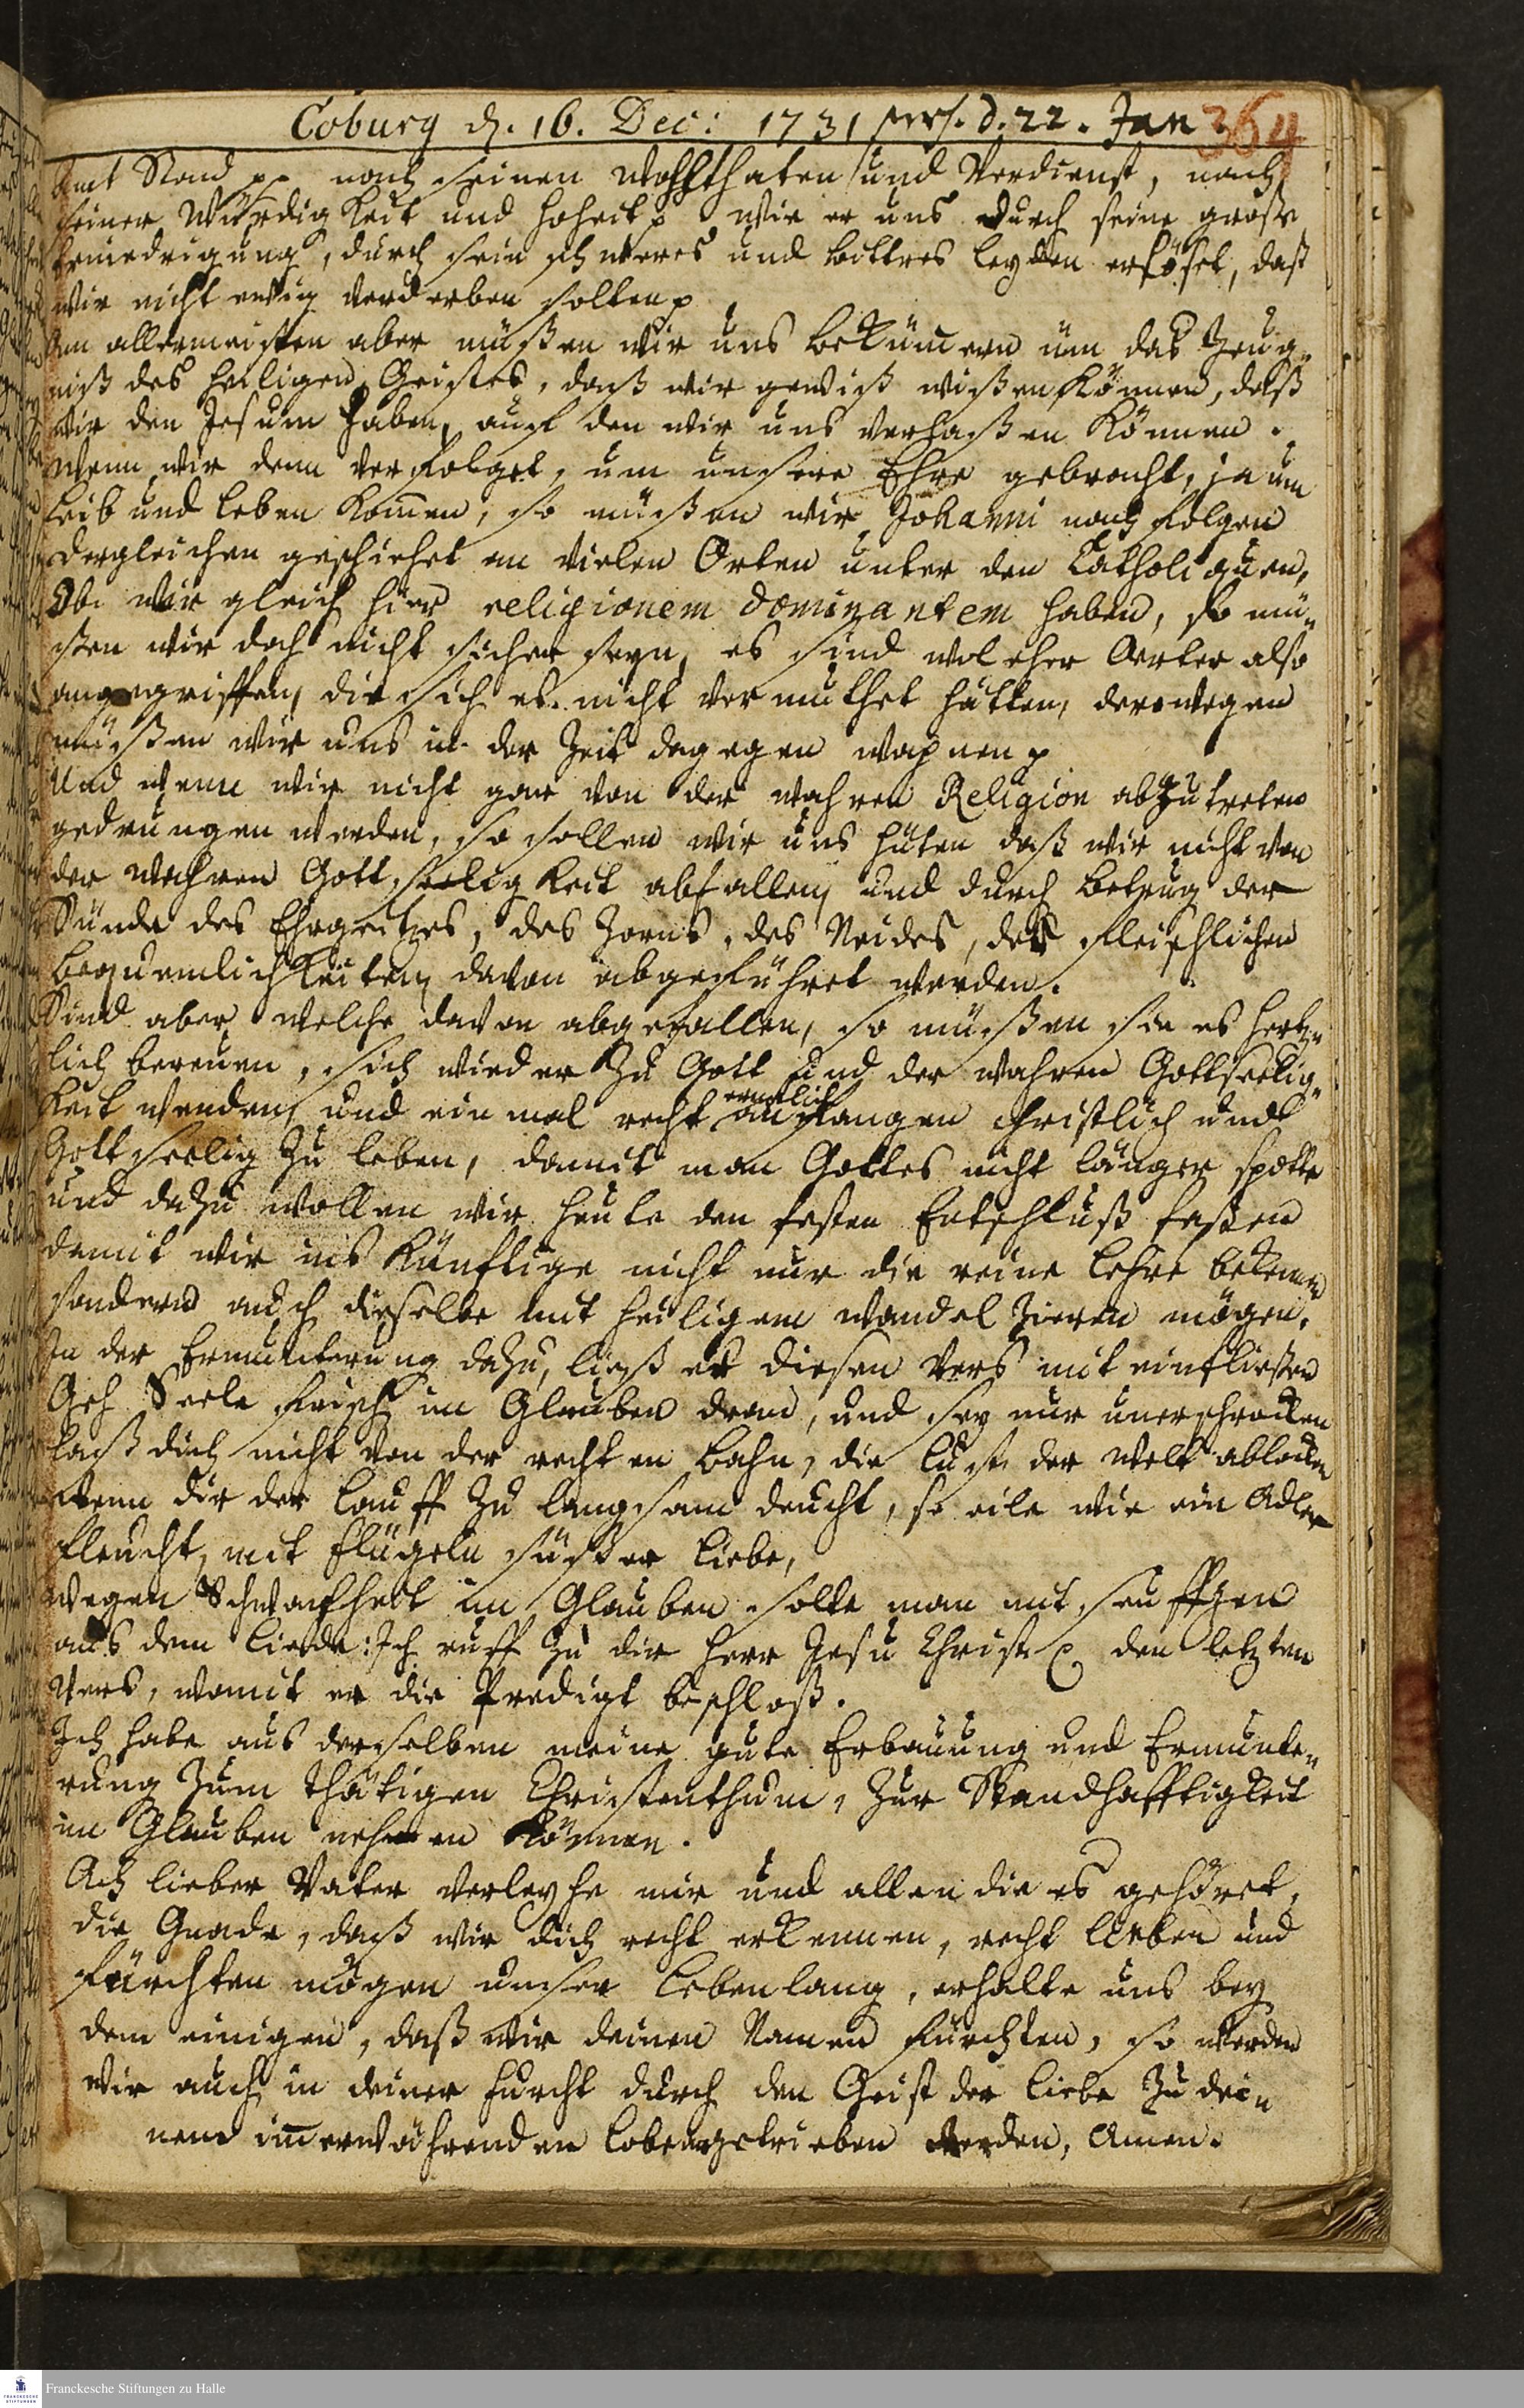 Coburg d. 16. Dec: 1731 præs. d. 22. Jan
364
Amt Stand pp nach seinen Wohlthaten und Verdienst, nach
seiner Würdigkeit und Hoheit p wie er uns durch seine große
Erniedrigung, durch sein schweres und bittres Leyden erlöset, daß
wir nicht ewig verderben solten p
Am allermeisten aber müßen wir uns bekümern üm das Zeug¬
niß des heiligen Geistes, daß wir gewiß wißen können, daß
wir den Jesum haben, auf den wir uns verlaßen können.
Wenn wir denn verfolget, um unsere Ehre gebracht, ja um
Leib und Leben komen, so müßen wir Johanni nachfolgen
dergleichen geschiehet an vielen Orten unter den Catholiquen,
Ob wir gleich hier religionem dominantem haben, so mü¬
ßen wir doch nicht sicher seyn, es sind wol eher Oerter also
angegriffen, die sich es nicht vermuthet hätten, derowegen
müßen wir uns in der Zeit dagegen wapnen p
Und wenn wir nicht gar von der wahren Religion abzutreten
gedrungen werden, so sollen wir uns hüten daß wir nicht von
der wahren Gottseeligkeit abfallen, und durch Betrug der
Sünde des Ehrgeitzes, des Zorns, des Neides, der fleischlichen
Bequemlichkeiten davon abgeführet werden.
Sind aber welche davon abgefallen, so müßen sie es hertz¬
lich bereuen, sich wieder zu Gott und der wahren Gottseelig¬
keit wenden, und ein mal recht ernstlich anfangen christlich und
Gottseelig zu leben, damit man Gottes nicht länger spotte
und dazu wollen wir heute den festen Entschluß faßen
damit wir ins künftige nicht nur die reine Lehre bekennen
sondern auch dieselbe mit heiligem Wandel zieren mögen.
In der Ermunterung dazu, ließ er diesen Vers mit einfließen
Geh Seele frisch im Glauben dran, und sey nur unerschrocken
laß dich nicht von der rechten Bahn, die Lust der Welt ablocken
wenn dir der Lauff zu langsam deucht, so eile wie ein Adler
fleucht, mit Flügeln süßer Liebe,
wegen Schwachheit im Glauben solte man mit seuffzen
aus dem Liede: Ich ruff zu dir Herr Jesu Christ p den letzten
Vers, womit er die Predigt beschloß.
Ich habe aus derselben meine gute Erbauung und Ermunte¬
rung zum thätigen Christenthum, zur Standhafftigkeit
im Glauben nehmen können.
Ach lieber Vater verleyhe mir und allen die es gehöret,
die Gnade, daß wir dich recht erkennen, recht lieben und
fürchten mögen unser Lebenlang, erhalte uns bey
dem einigen, daß wir deinen Namen fürchten, so werden
wir auch in deiner Furcht durch den Geist der Liebe zu dei¬
nem imerwährenden Lobe angetrieben werden, Amen.
Franckesche Stiftungen zu Halle